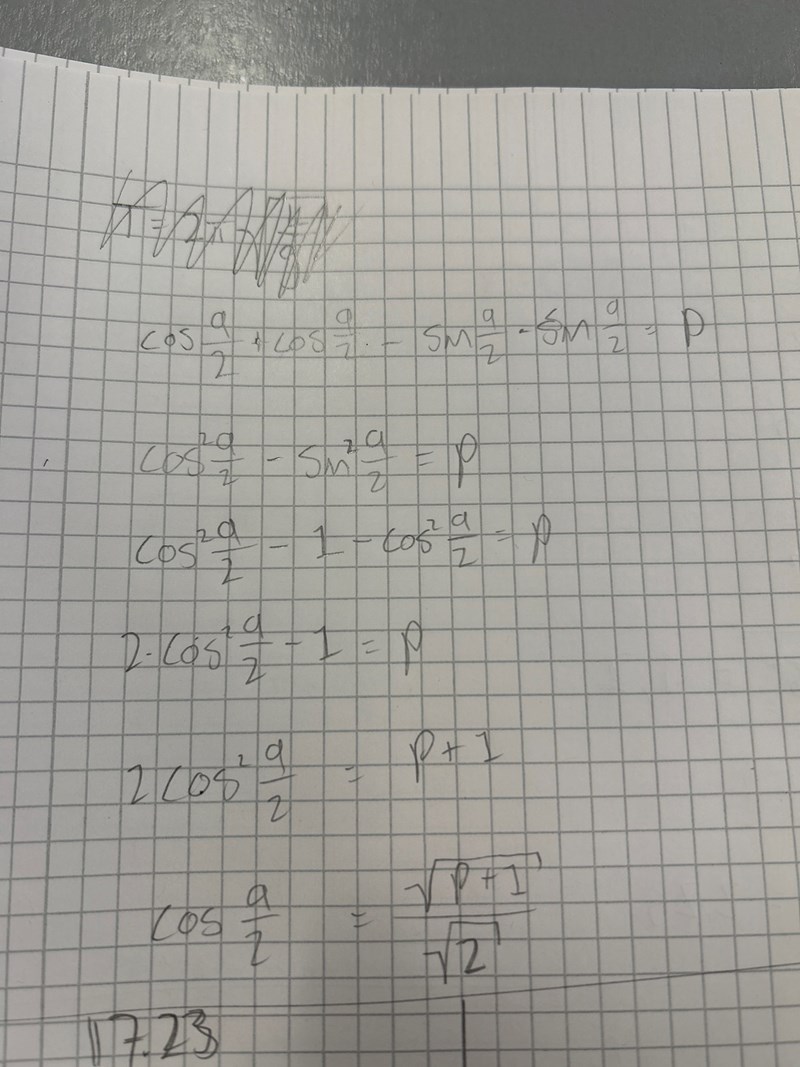 cos a/2 · cos a/2 - sin a/2 · sin a/2 = p
cos² a/2 - sin² a/2 = p
cos² a/2 - 1 - cos² a/2 = p
2·cos² a/2 - 1 = p
2 cos² a/2 = p+1
cos a/2 = √(p+1)/√2
17.23